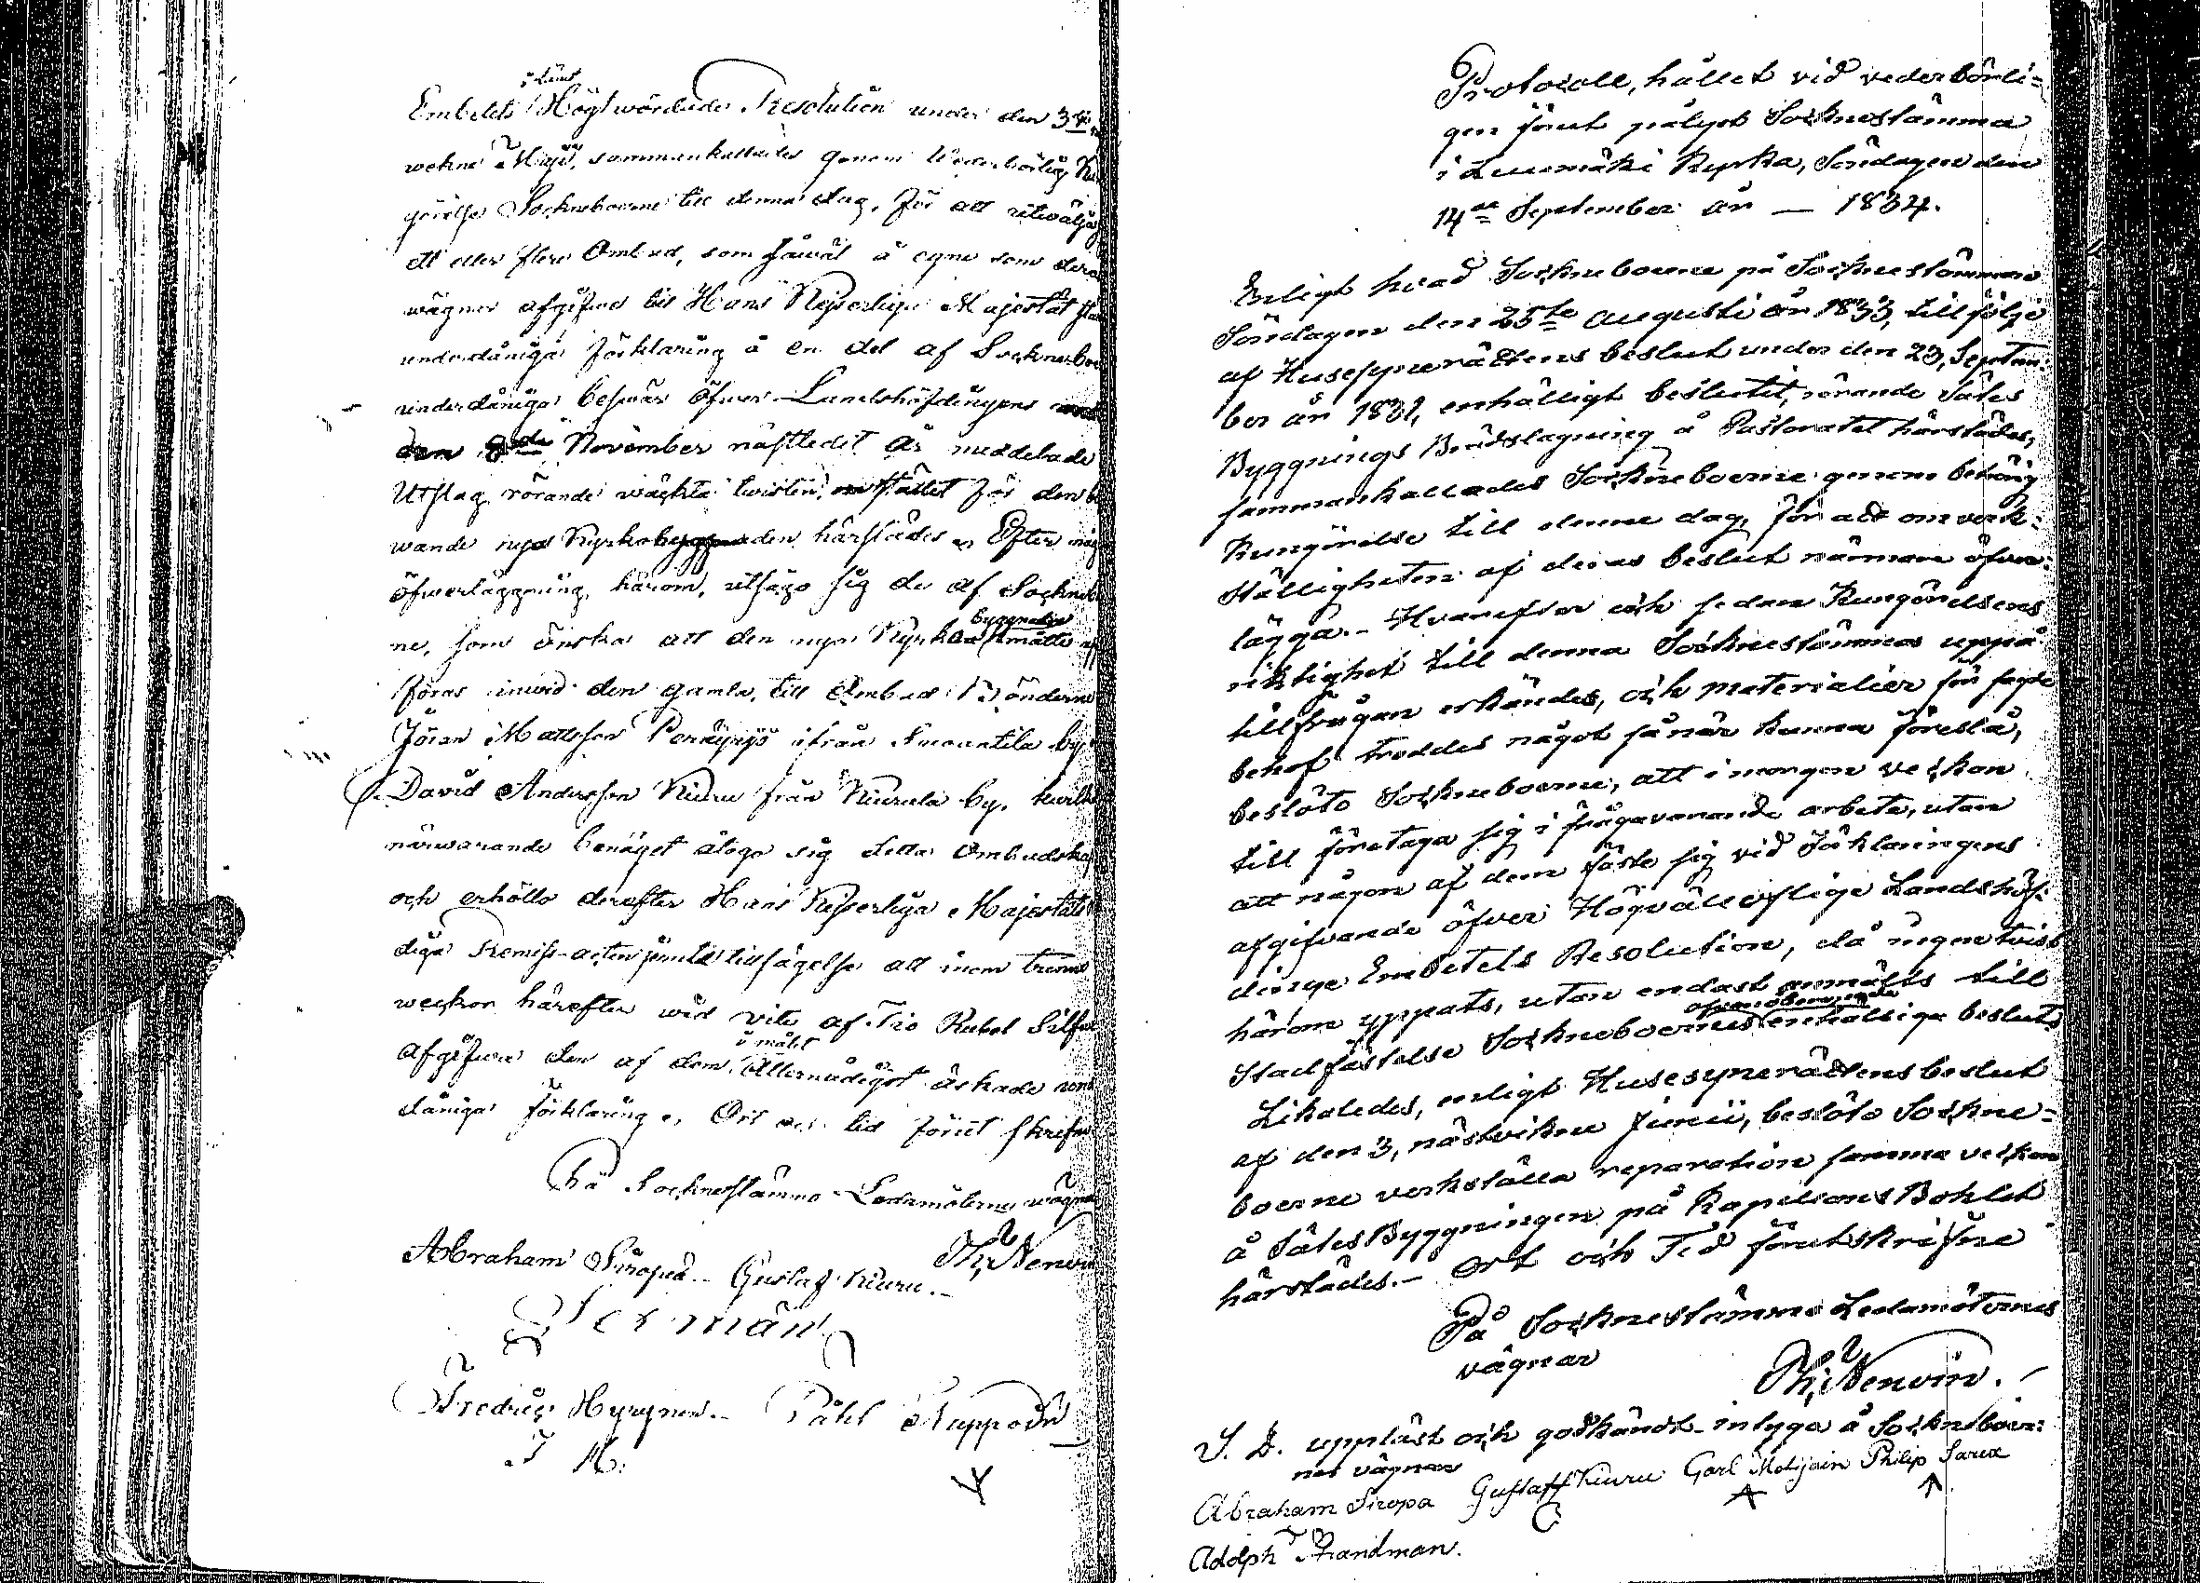 i Länet
Embetets Högtwördade Resolution under den 3de
wekne Maji, sammankallades genom Wederbörlig Kun
görelse Sockneboerne till denna dag, för att utwälja
ett eller flere Ombud, som såwäl å egne som deras
wägnar afgifwa till Hans Kejserliga Majestät
underdåniga förklaring å en del af Socknebo
underdåniga beswär öfwer Landshöfdingens
den 8de November nästledit år meddelade
Utslag rörande wäckta twisten, stället för den
wande nya Kyrkobyggnaden härstädes. Efter
öfwerläggning härom, utsågo sig de af Sockneboer
byggnaden
ne, som önska att den nya Kyrkan måtte
föras inwid den gamla, till Ombud Bönderne
Jöran Mattsson från Suoantila by
David Andersson Kiuru från Kiurula by, hwilka
närwarande benäget åtogo sig detta Ombudskap
och erhöllo derefter Hans Kejserliga Majestäts
diga Remiss-acten jämte tillsägelse att inom trenne
weckor härefter wid vite af Tio Rubel Silfwer
i målet
afgifwa den af dem Allernådigst äskade
dåniga förklaring. Ort och tid förut skrifne
På Socknestämmo-Ledamöternes wägnar
Abraham Siropä. Gustaf Kiuru. Th. Nenvin
Fredric Hyrynen. Påhl Kuppoin
Protocoll, hållet vid vederbörli=
gen förut pålyst Socknestämma
i Luumäki Kyrka, Söndagen den
14de September år — 1834.
Enligt hvad Socknebоerne på Socknestämman
Söndagen den 25te Augusti år 1833, till följe
af Husesynerättens beslut under den 23, Septem:
ber år 1831, enhälligt beslutit, rörande Sätes
Byggnings Brädslagning å Pastoratet härstädes,
sammankallades Socknebоerne genom behörig
Kungörelse till denna dag, för att om verk:
ställigheten af deras beslut närmare öfver:
lägga. – Hvarefter och sedan Kungörelsens
riktighet till denna Socknestämma uppå
tillfrågan erkändes, och materialier för sagde
behof troddes något så när kunna föreslå,
beslöto Socknebоerne, att i morgon veckan
till företaga sig i frågavarande arbete, utan
att någon af dem fäste sig vid Förklaringens
afgifvande öfver Högvälloflige Landshöf:
dinge Embetets Resolution, då ingen tvist
härom yppats, utan endast anmälts till
ofvanåberopade
Stadfästelse Socknebоernes enhälliga beslut.
Likaledes, enligt Husesynerättens beslut
af den 3, nästvikne Junii, beslöto Sockne=
boerne verkställa reparation samma veckan
å SätesByggningen på KapellansBohlet
härstädes. – Ort och Tid förutskrifne
På Socknestämmo Ledamöternes
vägnar
Th. Nenvin.
S. D. uppläst och godkändt intyga å Socknebоer:
nes vägnar
Abraham Siropa Gustaff Kiuru Carl Motjain Philip Sarea
Adolph Strandman.